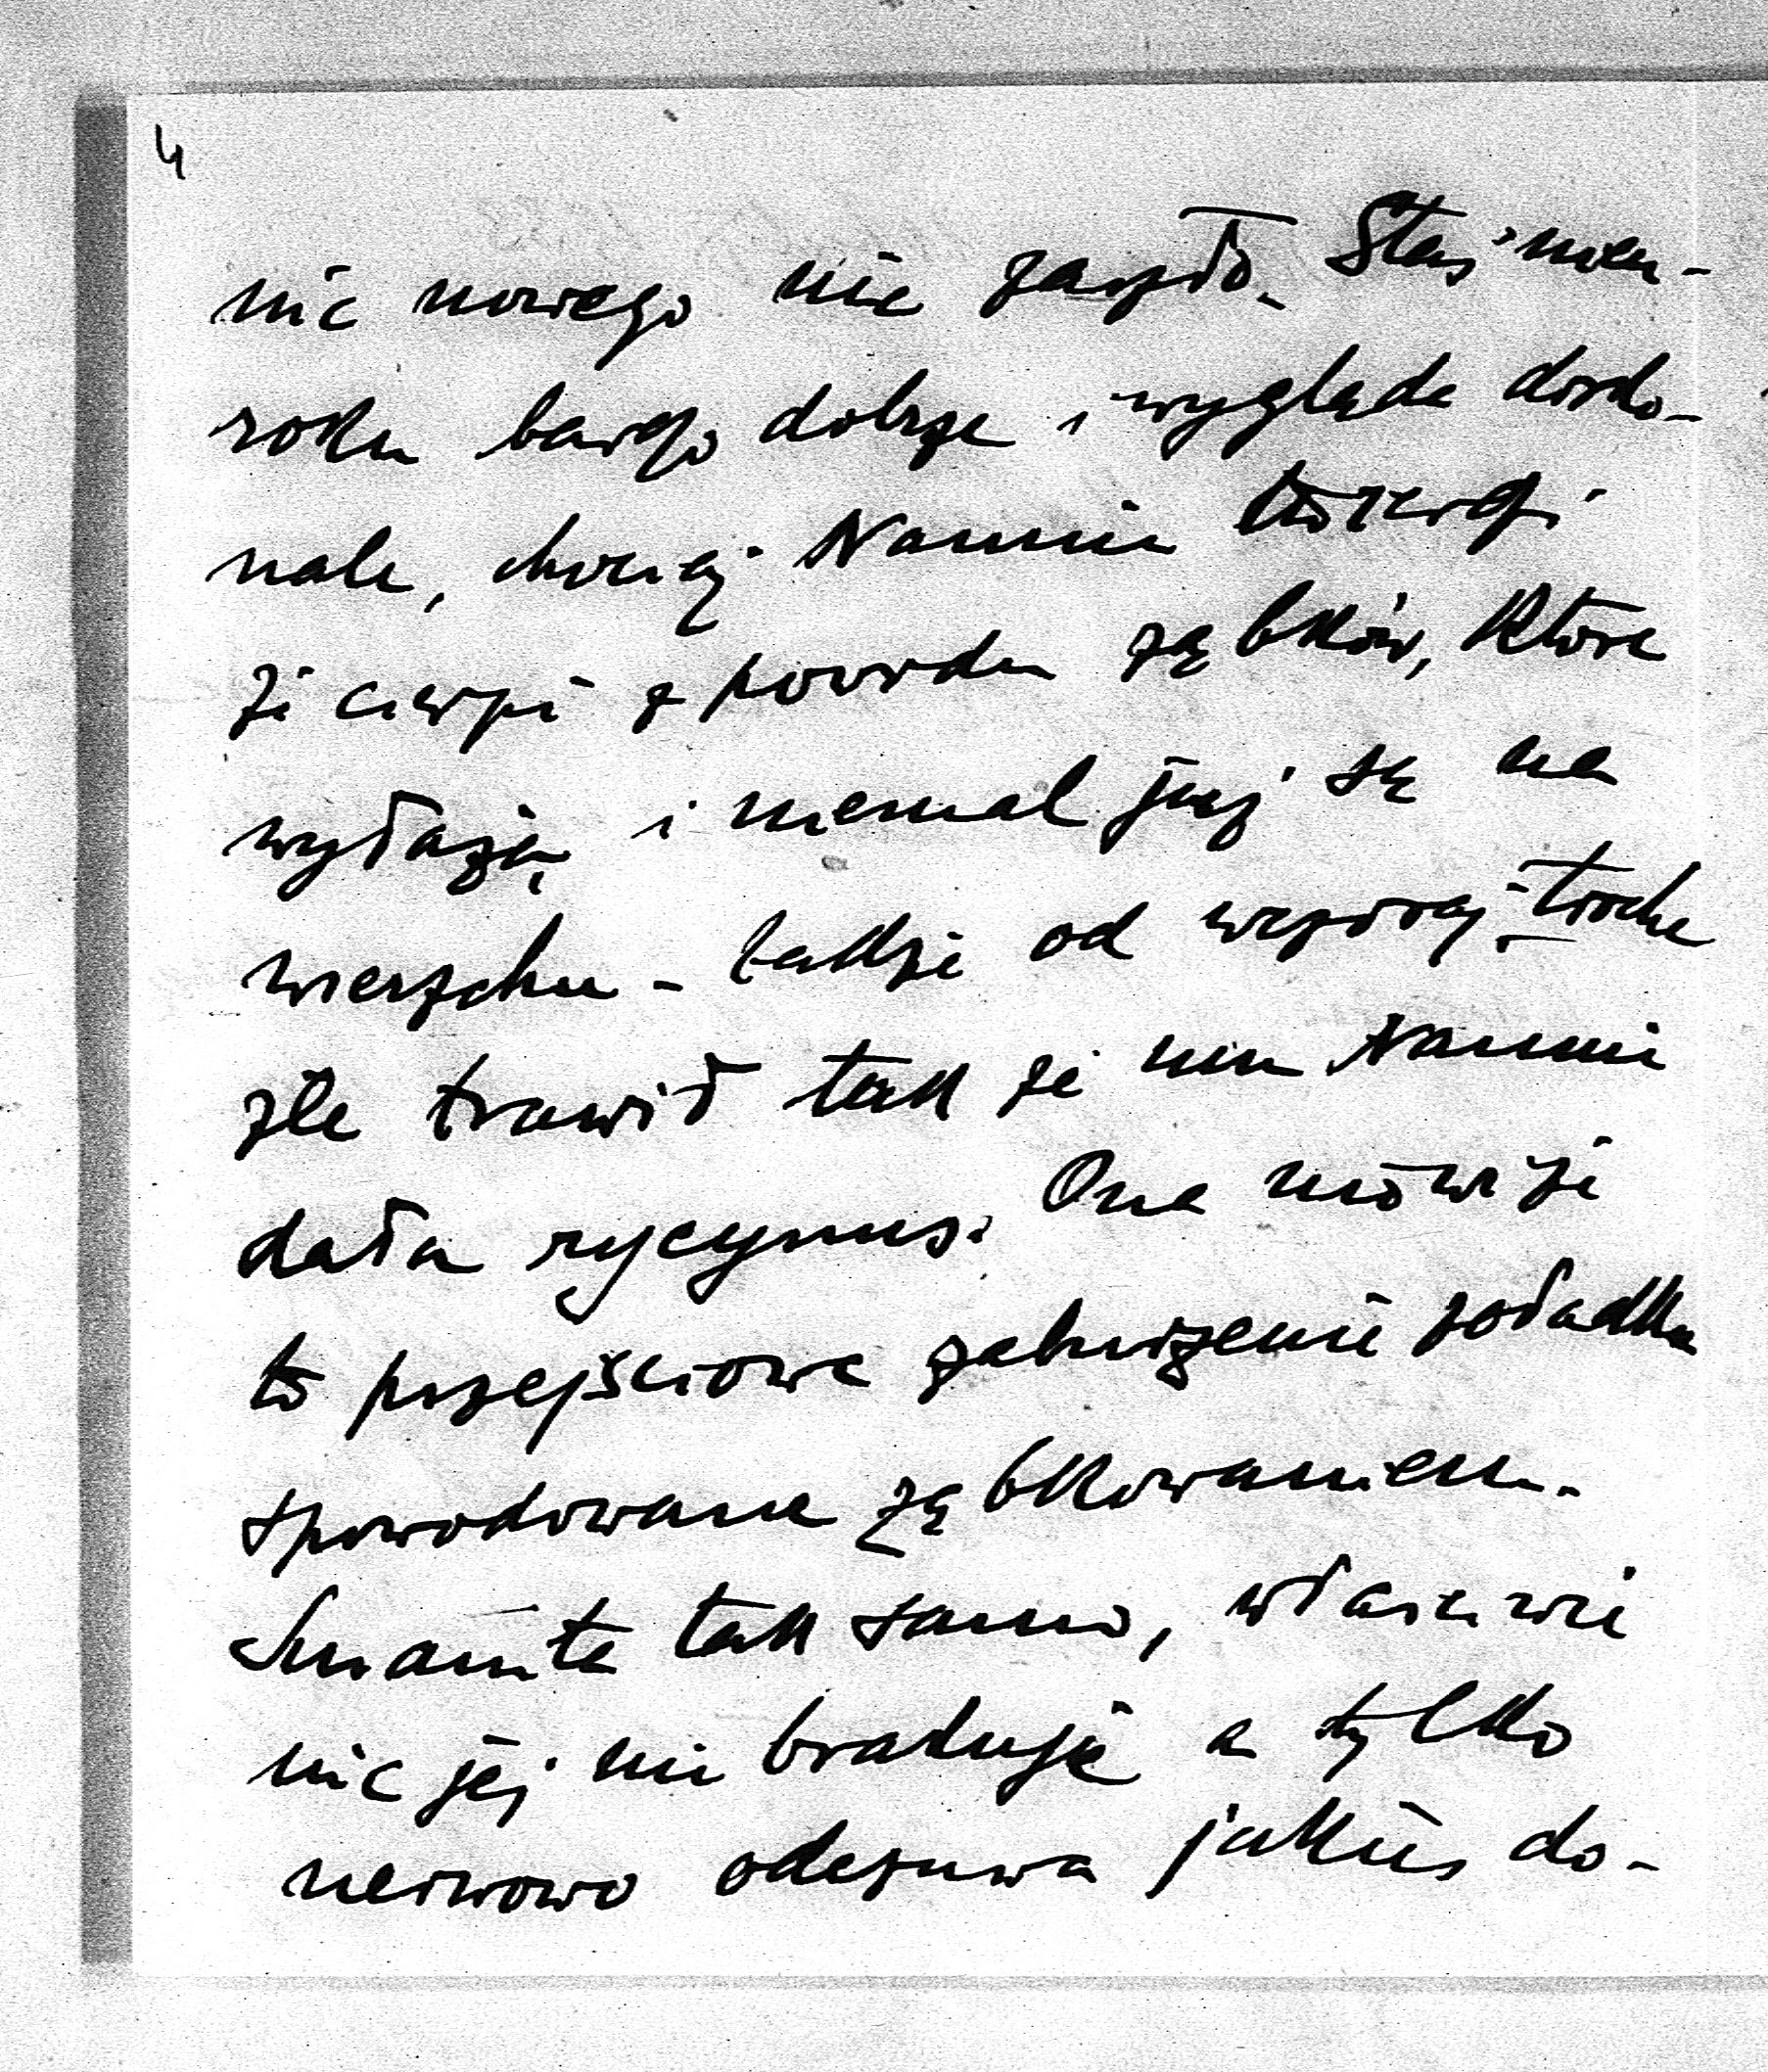 4
nic nowego nie zaszło. Staś nieu-
roku bardzo dobrze i wygląda dosko-
nale, chociaż Niania twierdzi
że cierpi z powodu ząbków, które
wyłażą, i niemal już są na
wierzchu - także od wczoraj trochę
źle trawił tak że mu Niania
dała rycynus. Ona mówi że
to przejściowe zaburzenie żołądka
spowodowane ząbkowaniem.
tak samo, właściwie
nic jej nie brakuje a tylko
nerwowo odczuwa jakieś do-